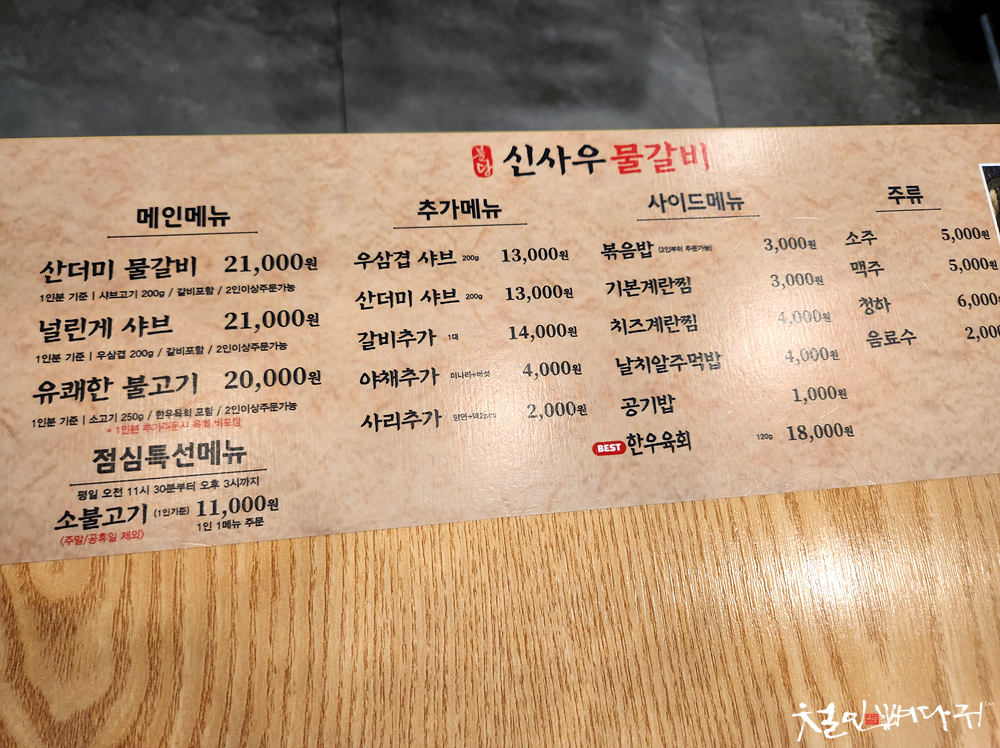 불당 신사우 물갈비
메인메뉴
산더미 물갈비 21,000원
1인분 기준 | 샤브고기 200g / 갈비포함 / 2인이상주문가능
널린게 샤브 21,000원
1인분 기준 | 우삼겹 200g / 갈비포함 / 2인이상주문가능
유쾌한 불고기 20,000원
1인분 기준 | 소고기 250g / 한우육회 포함 / 2인이상주문가능
* 1인분 추가주문시 육회 비포함
점심특선메뉴
평일 오전 11시 30분부터 오후 3시까지
소불고기 (1인기준) 11,000원
1인 1메뉴 주문
<주말/공휴일 제외>
추가메뉴
우삼겹 샤브 200g 13,000원
산더미 샤브 200g 13,000원
갈비추가 1대 14,000원
야채추가 미나리+버섯 4,000원
사리추가 당면+떡2pcs 2,000원
사이드메뉴
볶음밥 (2인부터 주문가능) 3,000원
기본계란찜 3,000원
치즈계란찜 4,000원
날치알주먹밥 4,000원
공기밥 1,000원
BEST 한우육회 120g 18,000원
주류
소주 5,000원
맥주 5,000원
청하 6,000원
음료수 2,000
철인뼈다귀™